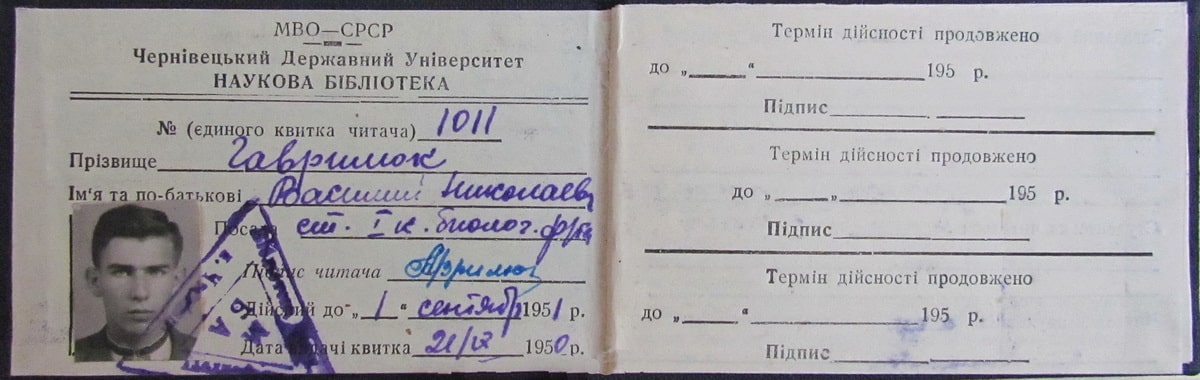 МВО—СРСР
Чернівецький Державний Університет
НАУКОВА БІБЛІОТЕКА
№ (єдиного квитка читача) 1011
Прізвище Гаврилюк
Ім'я та по-батькові Василий Николаев
Посада ст. I к. биолог. ф/та
Підпис читача
Дійсний до „1“ сентябр 1951 р.
Дата видачі квитка 21/IX 1950 р.
Термін дійсності продовжено
до „ “ 195 р.
Підпис
Термін дійсності продовжено
до „ „ 195 р.
Підпис
Термін дійсності продовжено
до „ “ 195 р.
Підпис